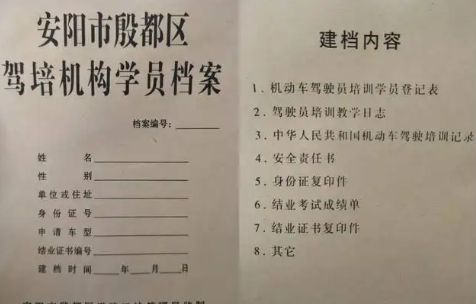 安阳市殷都区
驾培机构学员档案
档案编号：
姓 名
性 别
单位或住址
身份证号
申请车型
结业证书编号
建档时间 年 月 日
建档内容
1．机动车驾驶员培训学员登记表
2．驾驶员培训教学日志
3．中华人民共和国机动车驾驶培训记录
4．安全责任书
5．身份证复印件
6．结业考试成绩单
7．结业证书复印件
8．其它